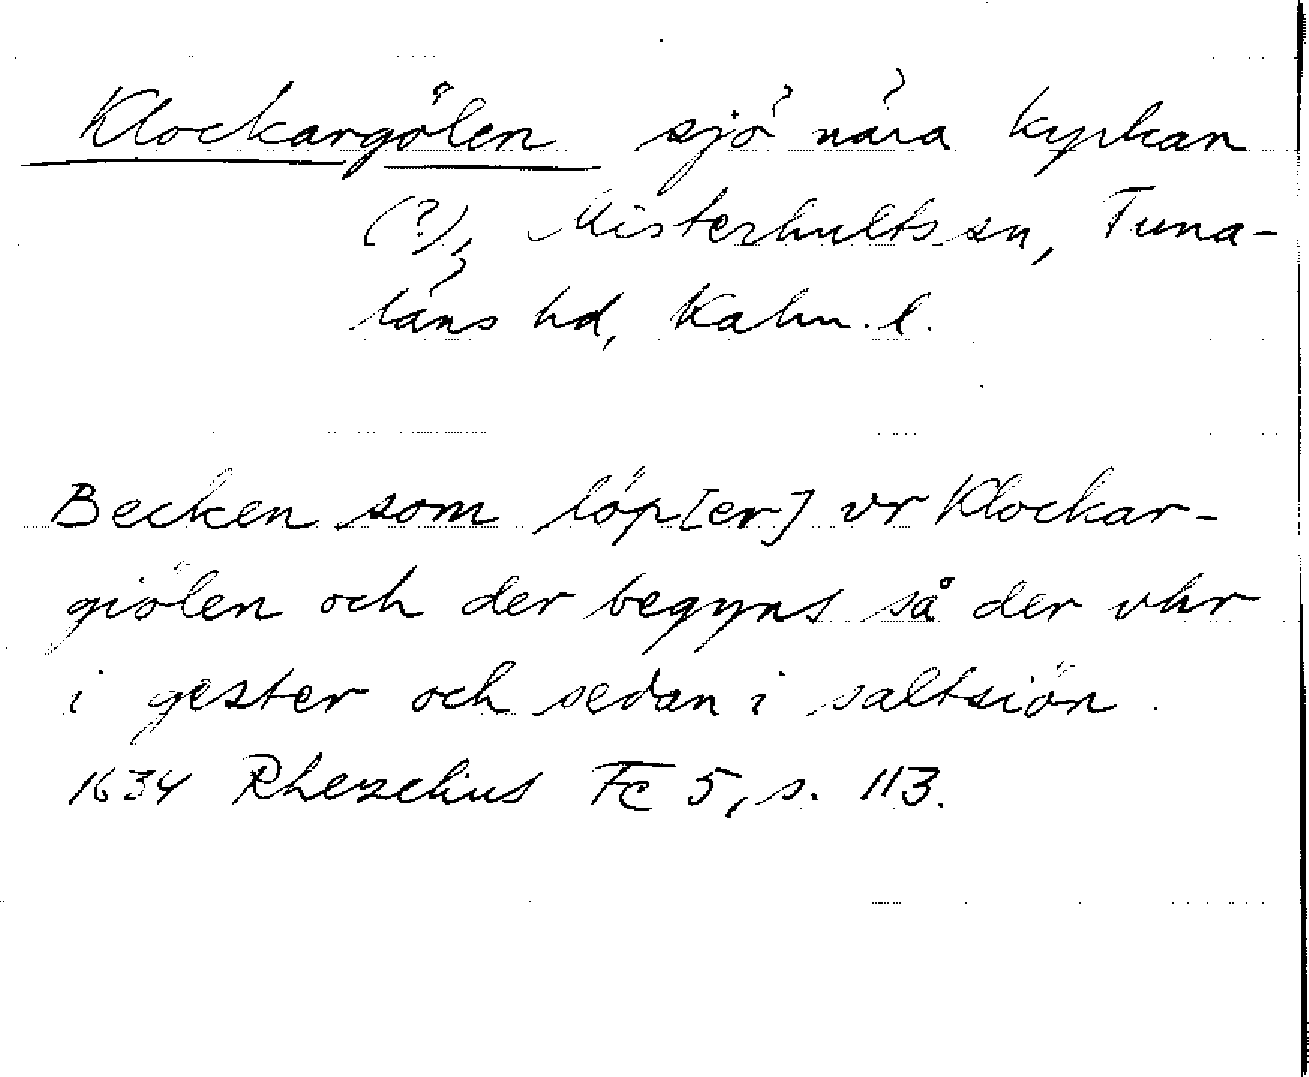 Klockargölen sjö nära kyrkan
(?), Misterhults sn, Tuna-
läns hd, Kalm. l.
Becken som löp[er] vr Klockar-
giölen och der begyns så der vhr
i gester och sedan i saltsiön.
1634 Rhezelius Fc 5, s. 113.